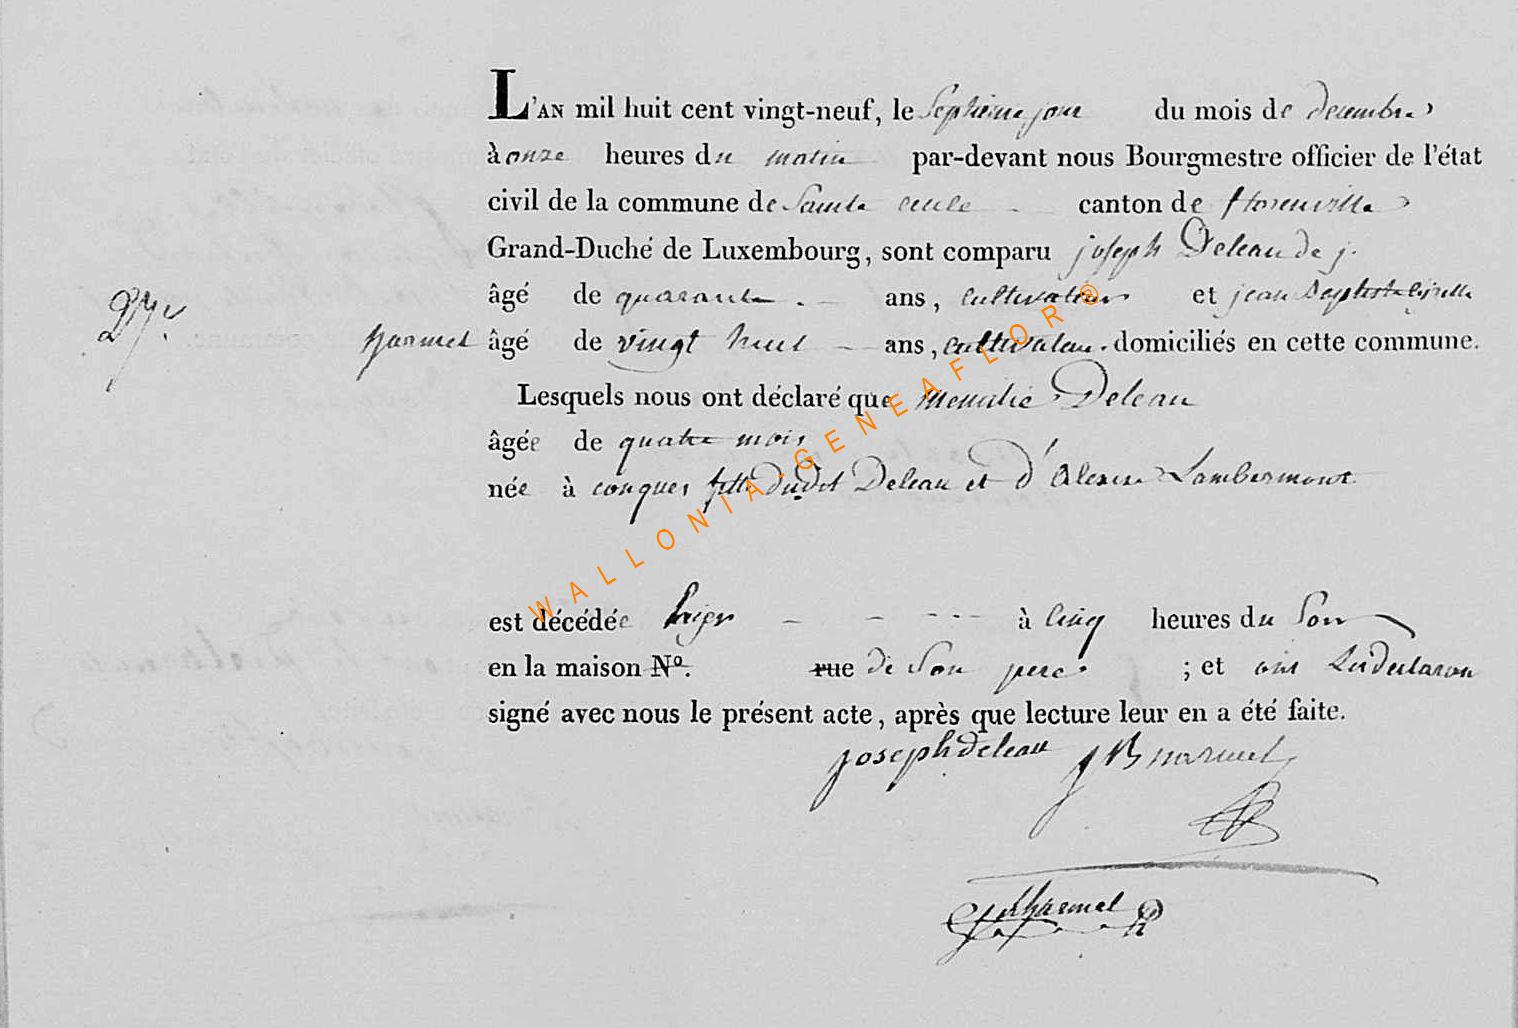 L'AN mil huit cent vingt-neuf, le Septieme jour du mois de decembre
à onze heures du matin par-devant nous Bourgmestre officier de l'état
civil de la commune de Sainte cecile canton de florenville
Grand-Duché de Luxembourg, sont comparu joseph Deleau de j.
âgé de quarante ans, cultivateur et jean Baptiste
harmel âgé de vingt huit ans, cultivateur domiciliés en cette commune.
Lesquels nous ont déclaré que Deleau
âgée de quatre mois
née à conques fille dudit Deleau et d' Lambermont
est décédée hier à cinq heures du Soir
en la maison N°. rue de Son pere ; et ont Les declarans
signé avec nous le présent acte, après que lecture leur en a été faite.
joseph deleau J B harmel
harmel
WALLONIA-GENEAFLOR®